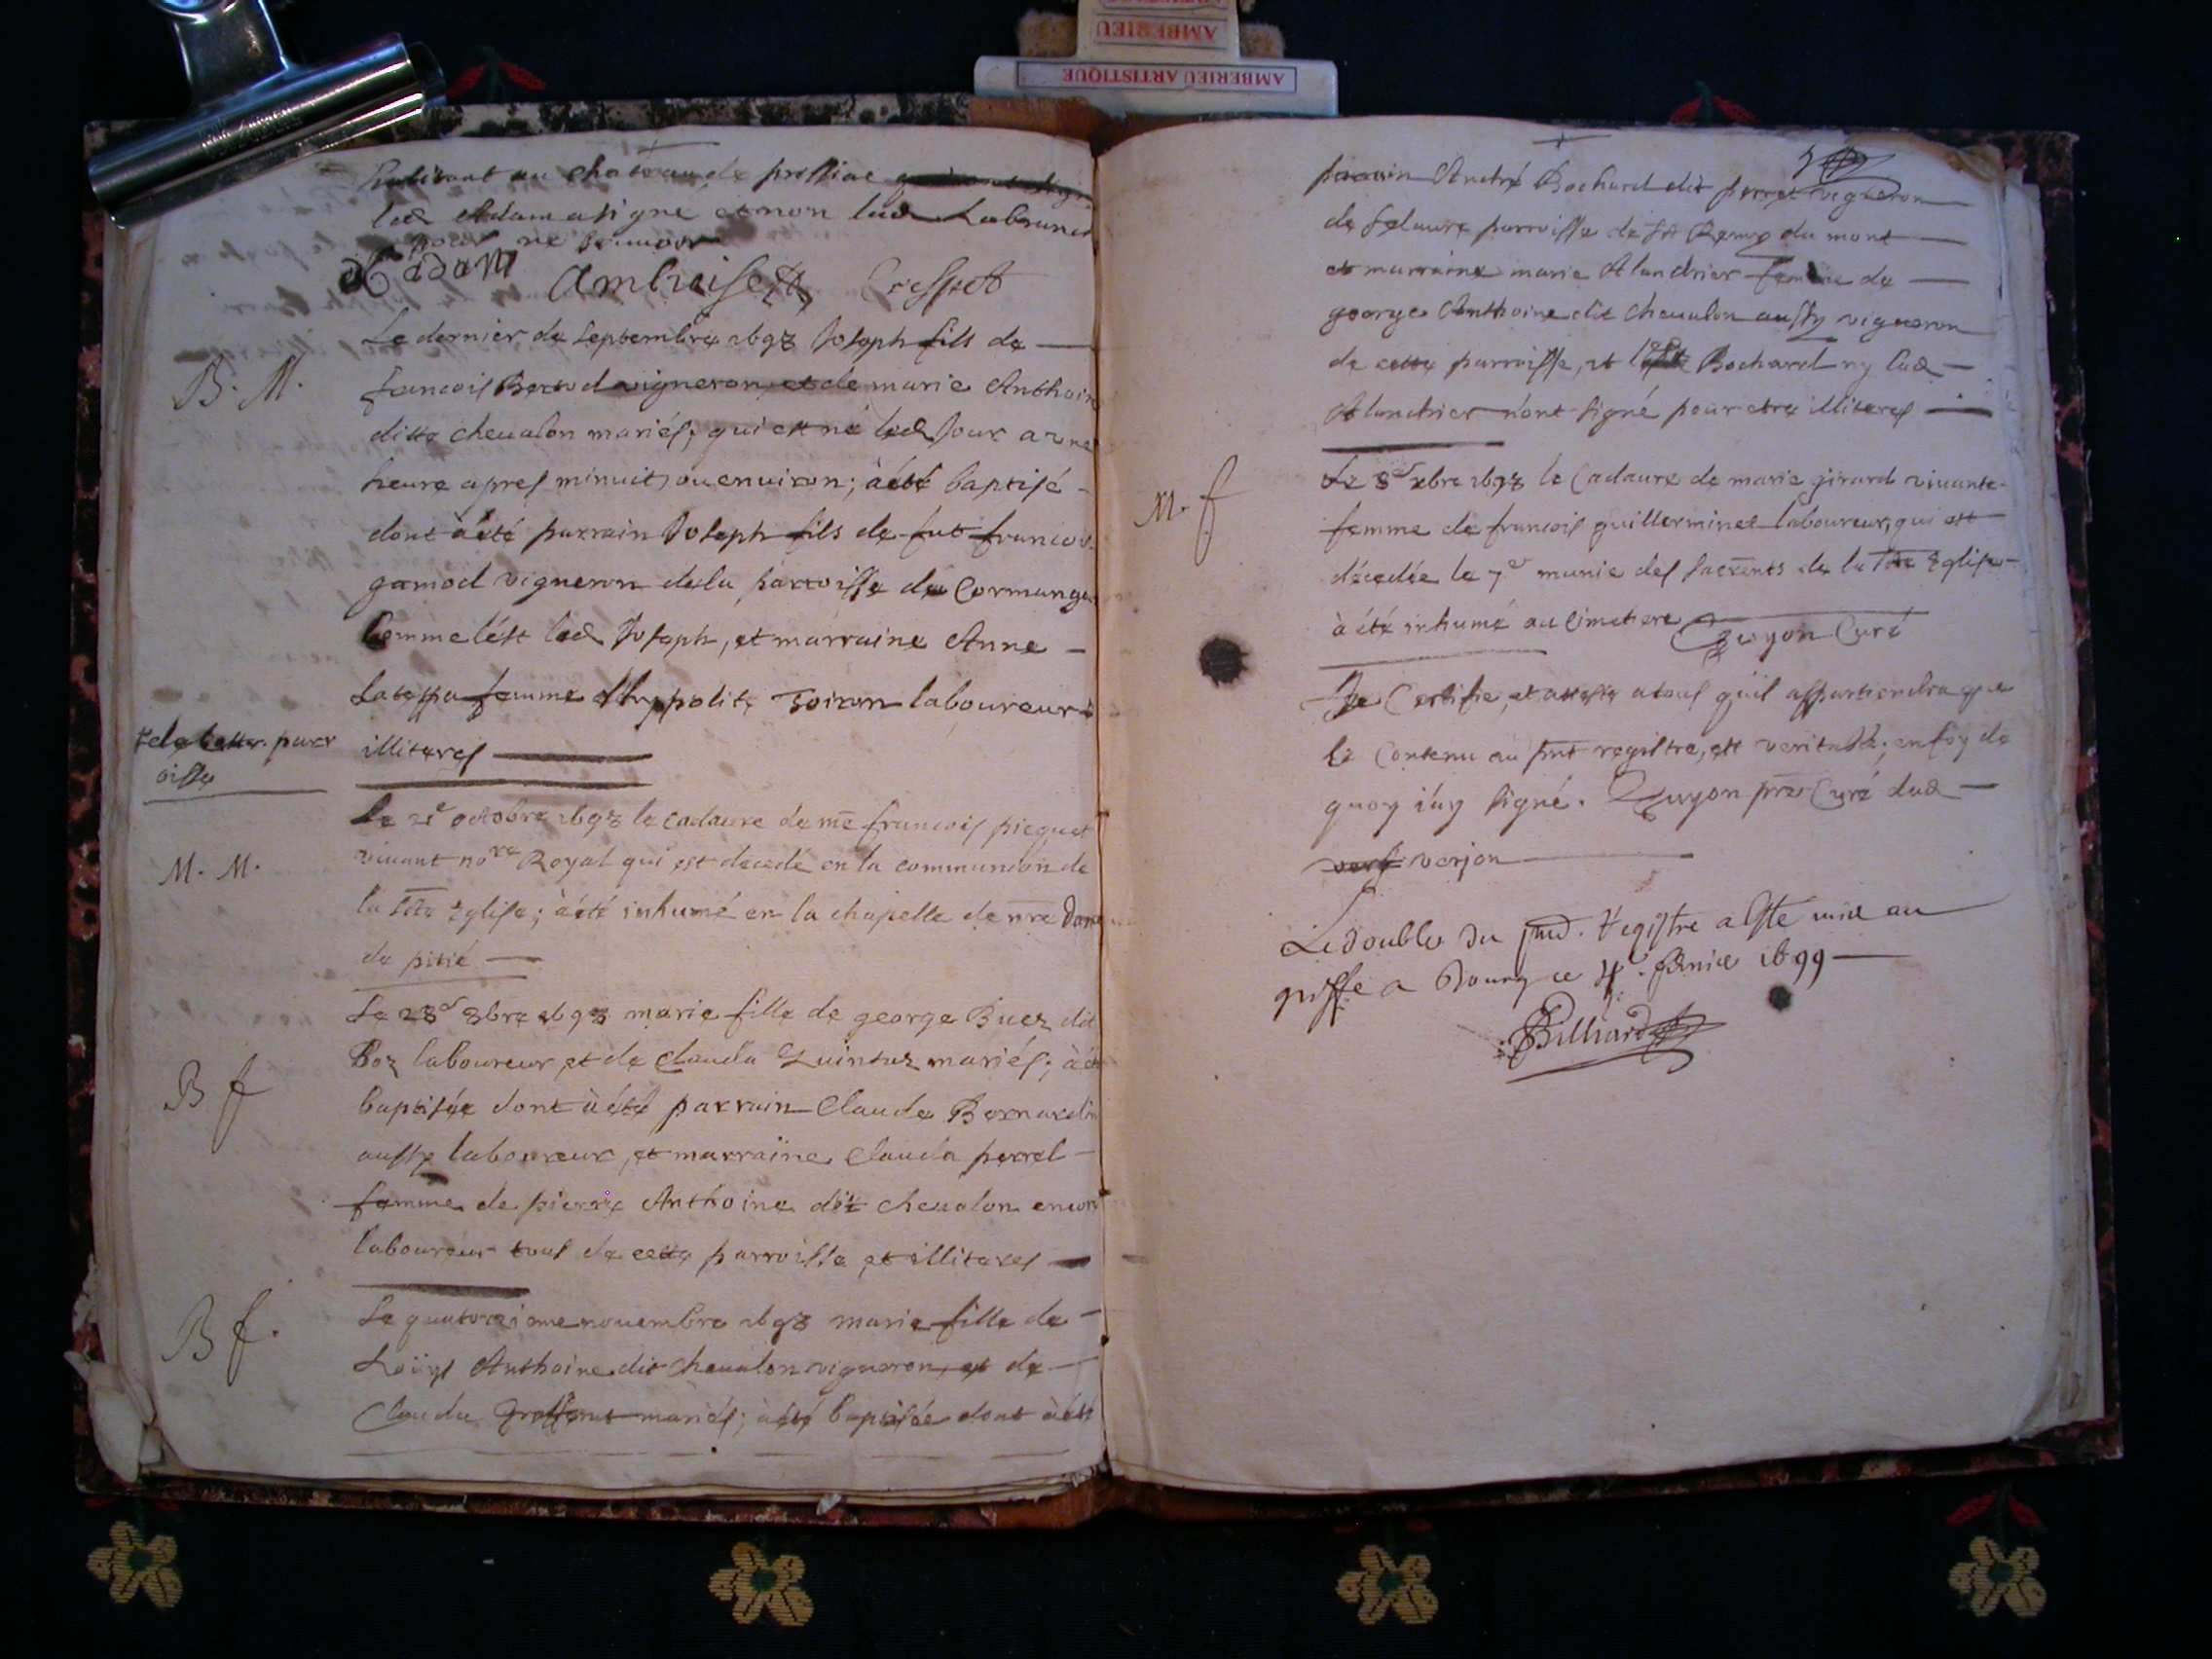 habitant au chateau de pressiac
led Adam a signé et non lad Labrune
pour ne scauoir
Adam Ambrise Crespet
Le dernier de septembre 1698 Joseph fils de
B. M.
francois vigneron, et de marie Anthoine
ditte cheualon mariés; qui est né led Jour a une
heure apres minuit, ou enuiron; à été baptisé
dont à été parrain Joseph fils de fut francois
gamod vigneron de la parroisse de Cormangou
comme lést led Joseph, et marraine Anne
femme d'hyppolite Toiron laboureur
+ de cette parr
oisse
illiteres
Le 21e octobre 1698 le cadaure de me francois piequet
M. M.
viuant nore Royal qui est decedé en la communion de
la ste Eglise; à été inhumé en la chapelle de nre Dame
de pitié
Le 28e 8bre 1698 marie fille de george Buez dit
B f
Boz laboureur, et de Clauda mariés; à été
baptisée dont à été parrain Claude Bernardin
aussy laboureur, et marraine Clauda perrel
femme de pierre Anthoine dit cheualon encor
laboureur tous de cette parroisse et illiteres
Le quatorzieme nouembre 1698 marie fille de
B f.
Loüys Anthoine dit cheualon vigneron, et de
Clauda mariés; à été baptisée dont à été
parrain André Bochard dit perret vigneron
de parroisse de st Remy du mont
et marraine marie Alandrier femme de
george Anthoine dit cheualon aussy vigneron
de cette parroisse, et Bochard ny lad
Alandrier n'ont signé pour etre illiteres
Le 8e xbre 1698 le Cadaure de marie girard viuante
M. f
femme de francois guillerminet laboureur, qui est
décedée le 7e munie des sacrents de la ste Eglise
à été inhumé au cimetiere Guyon Curé
Je Certifie, et atteste a tous qu'il appartiendra que
le Contenu au pnt registre, est veritable; en foy de
quoy i'ay signé. Guyon pre Curé dud
verjon
Le double du pnt. Registre a esté mis au
greffe a Bourg ce 4e. feurier 1699
Billiard
AMBERIEU
AMBERIEU ARTISTIQUE